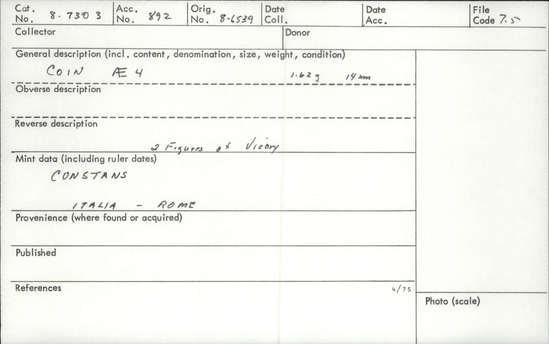 Cat. No. 8-7303 Acc. No. 892 Orig. No. 8-6539 Date Coll. Date Acc. File Code 7.5
Collector Donor
General description (incl. content, denomination, size, weight, condition)
COIN Æ 4 1.62 g 14 mm
Obverse description
Reverse description
2 Figures of Victory
Mint data (including ruler dates)
CONSTANS
ITALIA - ROME
Provenience (where found or acquired)
Published
References 4/75
Photo (scale)